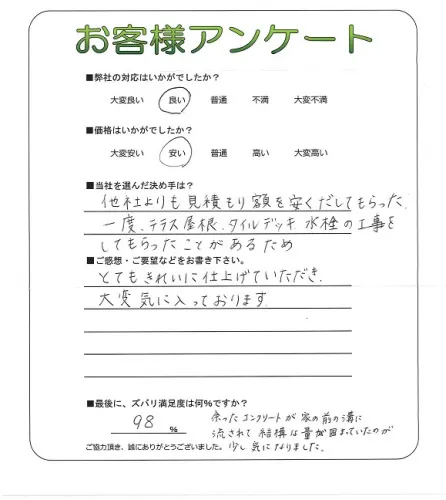 お客様アンケート
■弊社の対応はいかがでしたか？
大変良い 良い 普通 不満 大変不満
■価格はいかがでしたか？
大変安い 安い 普通 高い 大変高い
■当社を選んだ決め手は？
他社よりも見積もり額を安くだしてもらった
一度、テラス屋根、タイルデッキ、水栓の工事を
してもらったことがあるため
■ご感想・ご要望などをお書き下さい。
とてもきれいに仕上げていただき、
大変気に入っております
■最後に、ズバリ満足度は何％ですか？
98 %
余ったコンクリートが家の前の溝に
流されて結構な量が固まっていたのが
少し気になりました。
ご協力頂き、誠にありがとうございました。